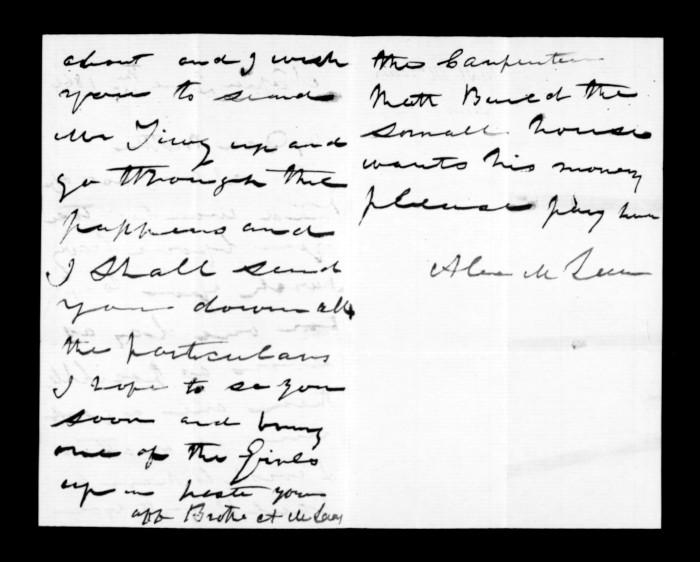 about and I wish
you to send
Mr up and
go through the
pappers and
I Shall send
you down all
the particulars
I hope to se you
soon and bring
one of the Girels
up in haste yours
aff Brothe A McLean
the Carpenter
thatt Buect the
somall house
wants his money
please pay him
Alex McLean